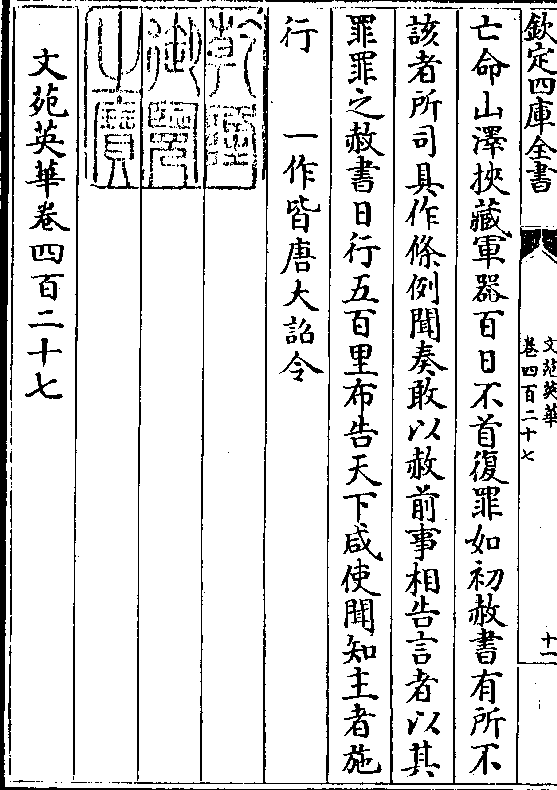 欽定四庫全書
文苑英華
卷四百二十七
十一
亡命山澤挾藏軍器百日不首復罪如初赦書有所不
該者所司具作條例聞奏敢以赦前事相告言者以其
罪罪之赦書日行五百里布告天下咸使聞知主者施
行
一作皆唐大詔令
乾隆
御覽
之寶
文苑英華卷四百二十七